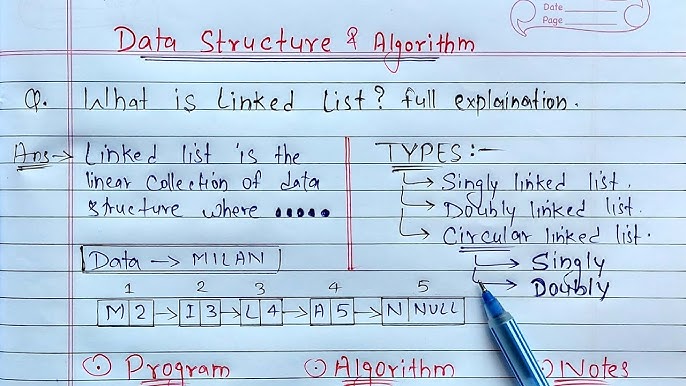 Date
Page
Data Structure & Algorithm
Q. What is Linked List? full explaination.
Ans→ Linked list is the
linear collection of data
structure where .....
Data → MILAN
1 2 3 4 5
M 2 → I 3 → L 4 → A 5 → N NULL
TYPES :-
→ Singly linked list.
→ Doubly linked list.
→ Circular linked list.
→ Singly
→ Doubly
Program Algorithm Notes